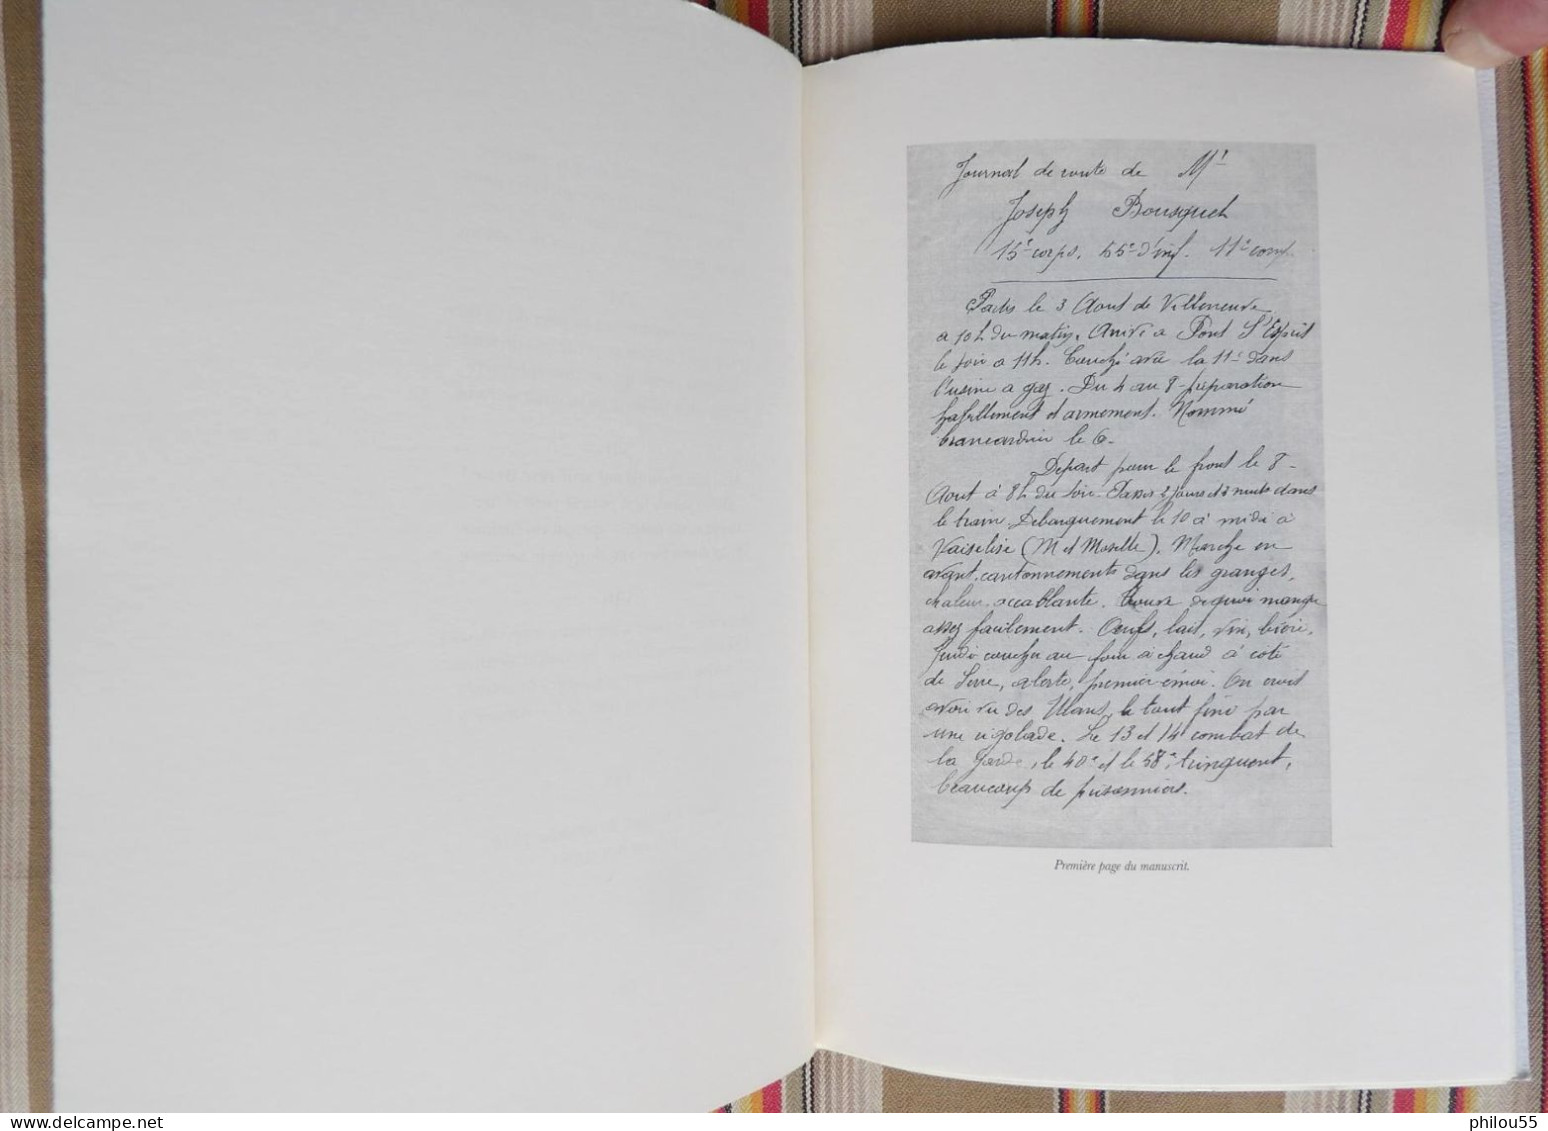 Journal de route de Mr
Joseph Bousquet
15e corps. 55e d'inf. 11e comp.
Partis le 3 Aout de Villeneuve
a 10h du matin. Arrivé a Pont St Esprit
le soir a 11h. Couché avec la 11e dans
l'usine a gaz. Du 4 au 8 - préparation
habillement et armement. Nommé
brancardier le 6.
Départ pour le front le 8
Aout à 8h du soir. Passés 2 jours et 2 nuits dans
le train. Debarquement le 10 à midi à
Vaiselise (M et Moselle). Marche en
avant, cantonnements dans les granges,
chaleur accablante. Trouve de quoi manger
assez facilement. Oeufs, lait, vin, bière.
Jeudi coucher au four à chaud à côté
de Serre, alerte, premier émoi. On croit
avoir vu des Ulans, le tout fini par
une rigolade. Le 13 et 14 combat de
la Garde, le 40e et le 58e trinquent,
beaucoup de prisonniers.
Première page du manuscrit.
delcampe.net
philou55